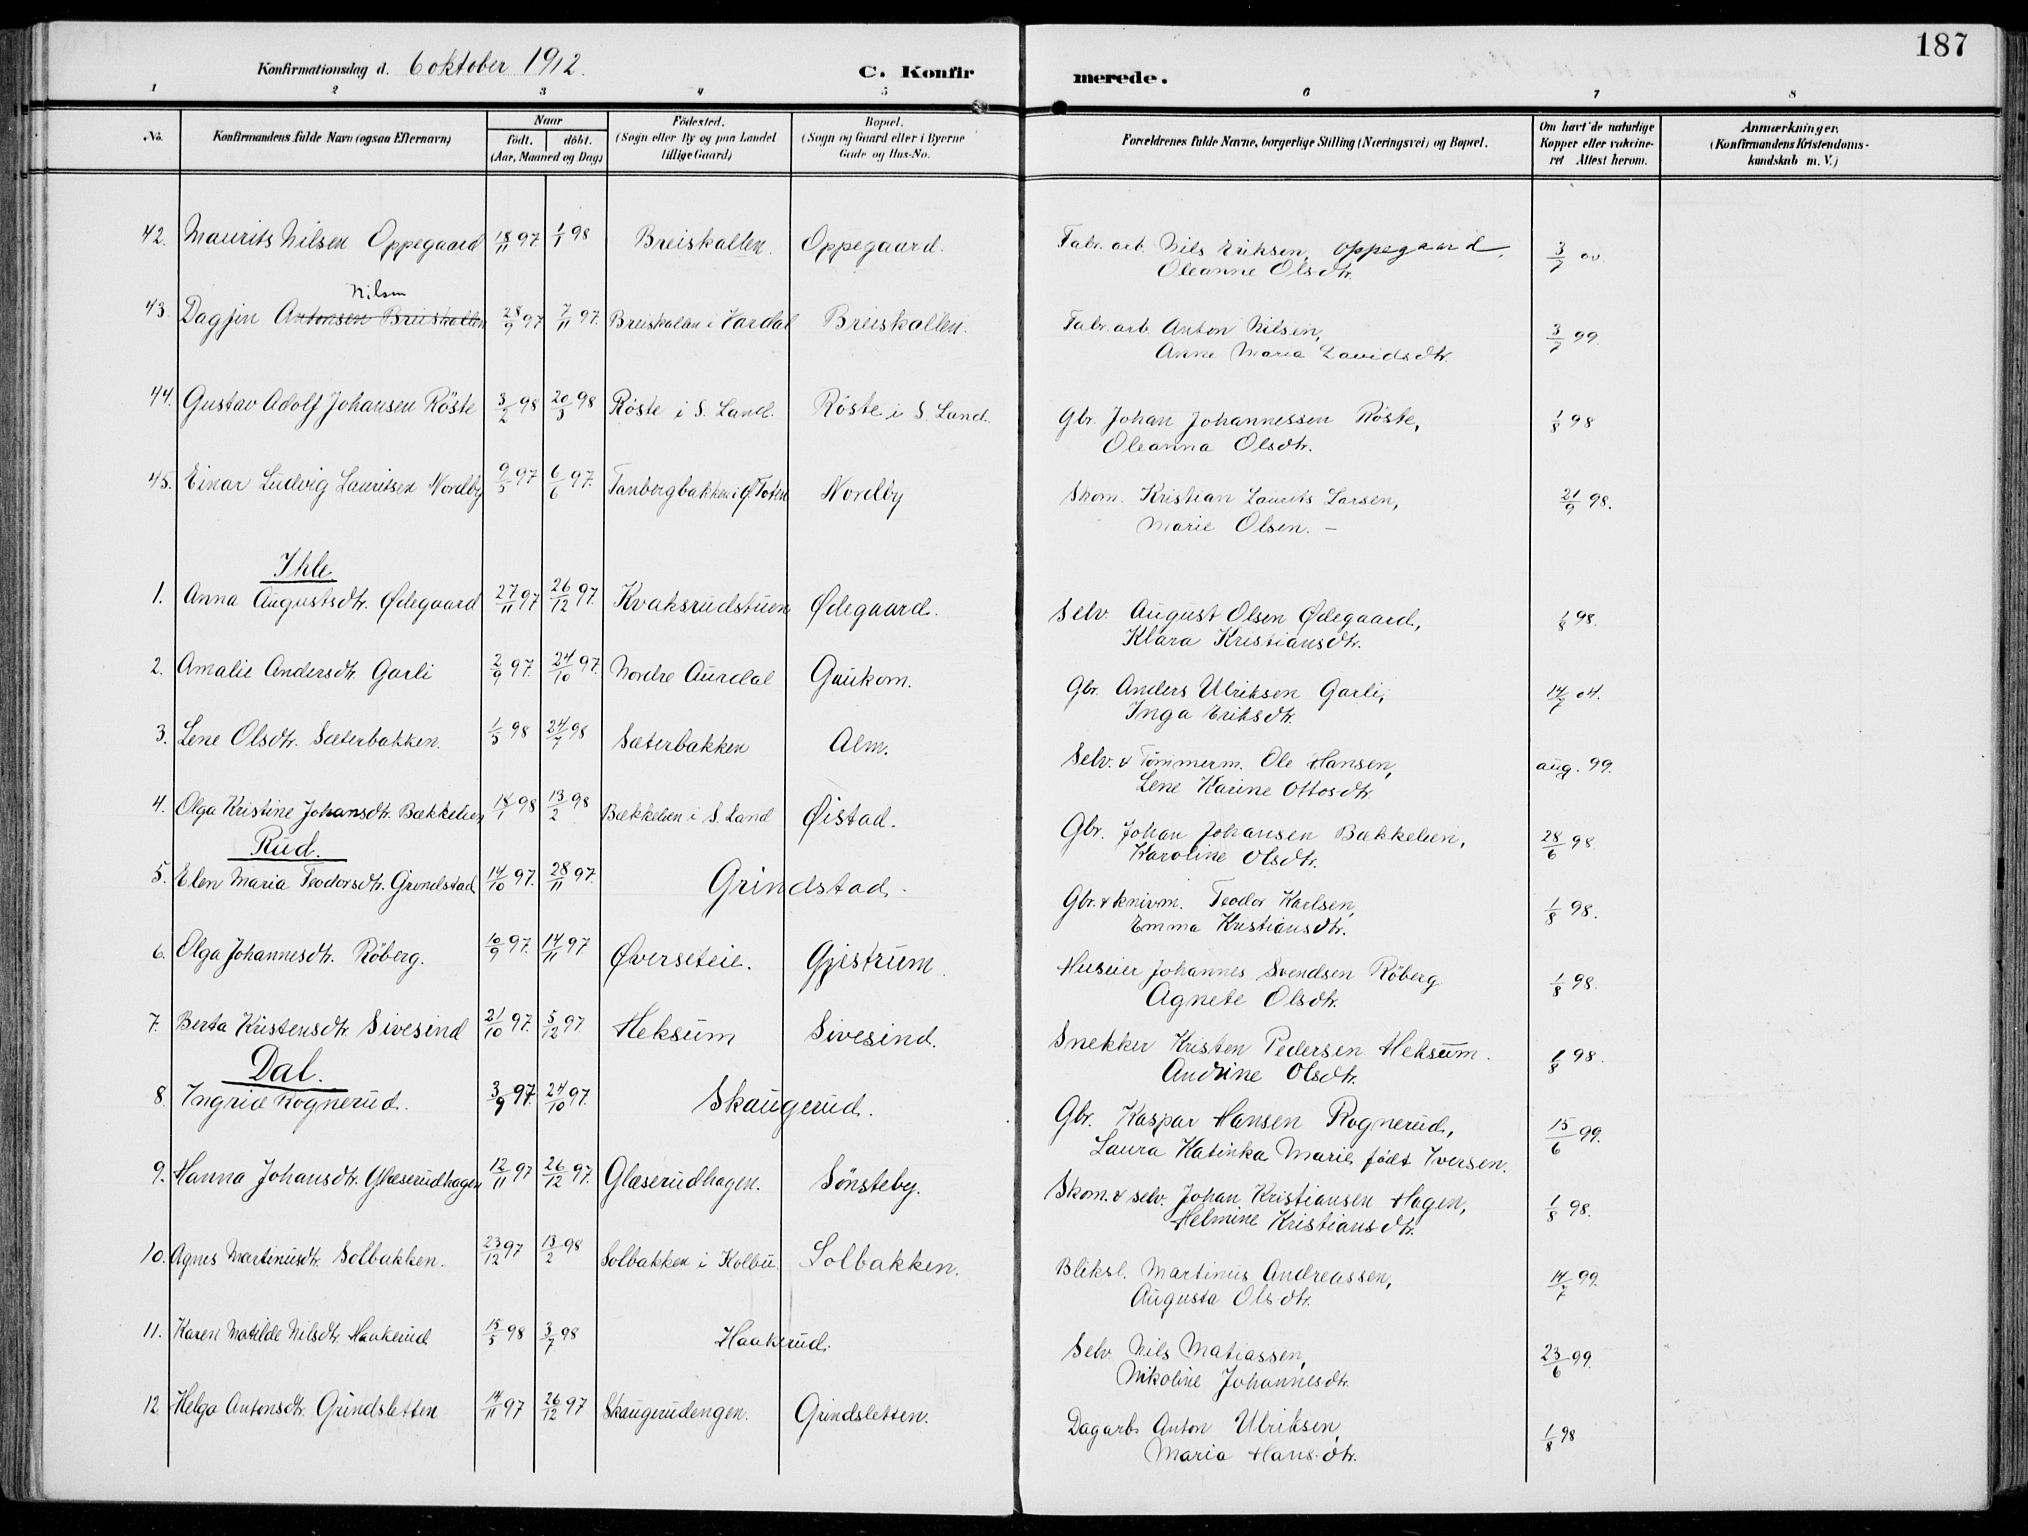 187
Konfirmationsdag d. 6 oktober 1912.
C. Konfirmerede.
1 2 3 4 5 6 7 8
No. Konfirmandens fulde Navn (ogsaa Efternavn) Naar født. døbt. (Aar, Maaned og Dag) Fødested. (Sogn eller By og paa Landet tillige Gaard) Bopæl. (Sogn og Gaard eller i Byerne Gade og Hus-No. Forældrenes fulde Navne, borgerlige Stilling (Næringsvei) og Bopæl. Om havt de naturlige Kopper eller vakcineret Attest herom. Anmærkninger. (Konfirmandens Kristendomskundskab m. V.)
42. Maurits Nilsen Oppegaard 18/11 97. 1/1 98 Breiskallen. Oppegaard. Fabr. arb. Nils Eriksen, Oppegaard, 3/7 00.
Oleanne Olsdtr.
Nilsen
43. Dagfin Antonsen Breiskallen 28/9 97 7/11 97. Breiskalan i Vardal Breiskallen. Fabr. arb. Anton Nilsen, 3/7 99.
Anne Maria Davidsdtr.
44. Gustav Adolf Johansen Röste 3/2 98 20/3 98 Röste i S. Land. Röste i S. Land. Gbr. Johan Johannessen Röste, 1/8 98
Oleanna Olsdtr.
45. Einar Ludvig Lauritsen Nordby 9/5 97 6/6 97. Tanbergbakken i Ø Toten Nordby Skom. Kristian Laurits Larsen, 21/9 98.
Marie Olsen. –
Ihle
1. Anna Augustsdtr. Ødegaard 27/11 97 26/12 97. Kvaksrudstuen Ødegaard. Selv. August Olsen Ødegaard, 1/8 98.
Klara Kristiansdtr.
2. Amalie Andersdtr. Garli 2/9 97. 24/10 97. Nordre Aurdal Gaukom. Gbr. Anders Ulriksen Garli, 14/7 04.
Inga Eriksdtr.
3. Lene Olsdtr. Sæterbakken. 1/5 98 24/7 98 Sæterbakken Alm. Selv. & Tømmerm. Ole Hansen, aug. 99.
Lene Karine Ottosdtr.
4. Olga Kristine Johansdtr. Bækkelien 14/1 98 13/2 98 Bækkelien i S. Land Øistad. Gbr. Johan Johansen Bækkelien, 28/6 98.
Karoline Olsdtr.
Rud.
5. Elen Maria Teodorsdtr. Grindstad 14/10 97. 28/11 97. Grindstad. Gbr. & knivm. Teodor Karlsen, 1/8 98.
Emma Kristiansdtr.
6. Olga Johannesdtr. Röberg. 10/9 97. 14/11 97 Øverseteie. Gjestrum. Huseier Johannes Svendsen Röberg 1/8 98.
Agnete Olsdtr.
7. Berta Kristensdtr. Sivesind 21/10 97. 5/12 97. Heksum Sivesind. Snekker Kristen Pedersen Heksum. 1/8 98.
Andrine Olsdtr.
Dal.
8. Ingrid Rognerud. 3/9 97. 24/10 97. Skaugerud. Gbr. Kaspar Hansen Rognerud, 15/6 99.
Laura Katinka Marie født Iversen.
9. Hanna Johansdtr. Glæserudhagen 12/11 97 26/12 97. Glæserudhagen. Sønsteby. Skom. & selv. Johan Kristiansen Hagen, 1/8 98.
Helmine Kristiansdtr.
10. Agnes Martinusdtr. Solbakken. 23/12 97 13/2 98 Solbakken i Kolbu. Solbakken. Bliksl. Martinus Andreassen, 14/7 99.
Augusta Olsdtr.
11. Karen Matilde Nilsdtr. Haakerud 15/5 98 3/7 98 Haakerud. Selv. Nils Matiassen, 23/6 99.
Nikoline Johannesdtr.
12. Helga Antonsdtr. Grindsletten 14/11 97 26/12 97 Skaugerudengen. Grindsletten. Dagarb. Anton Ulriksen, 1/8 98
Maria Hansdtr.